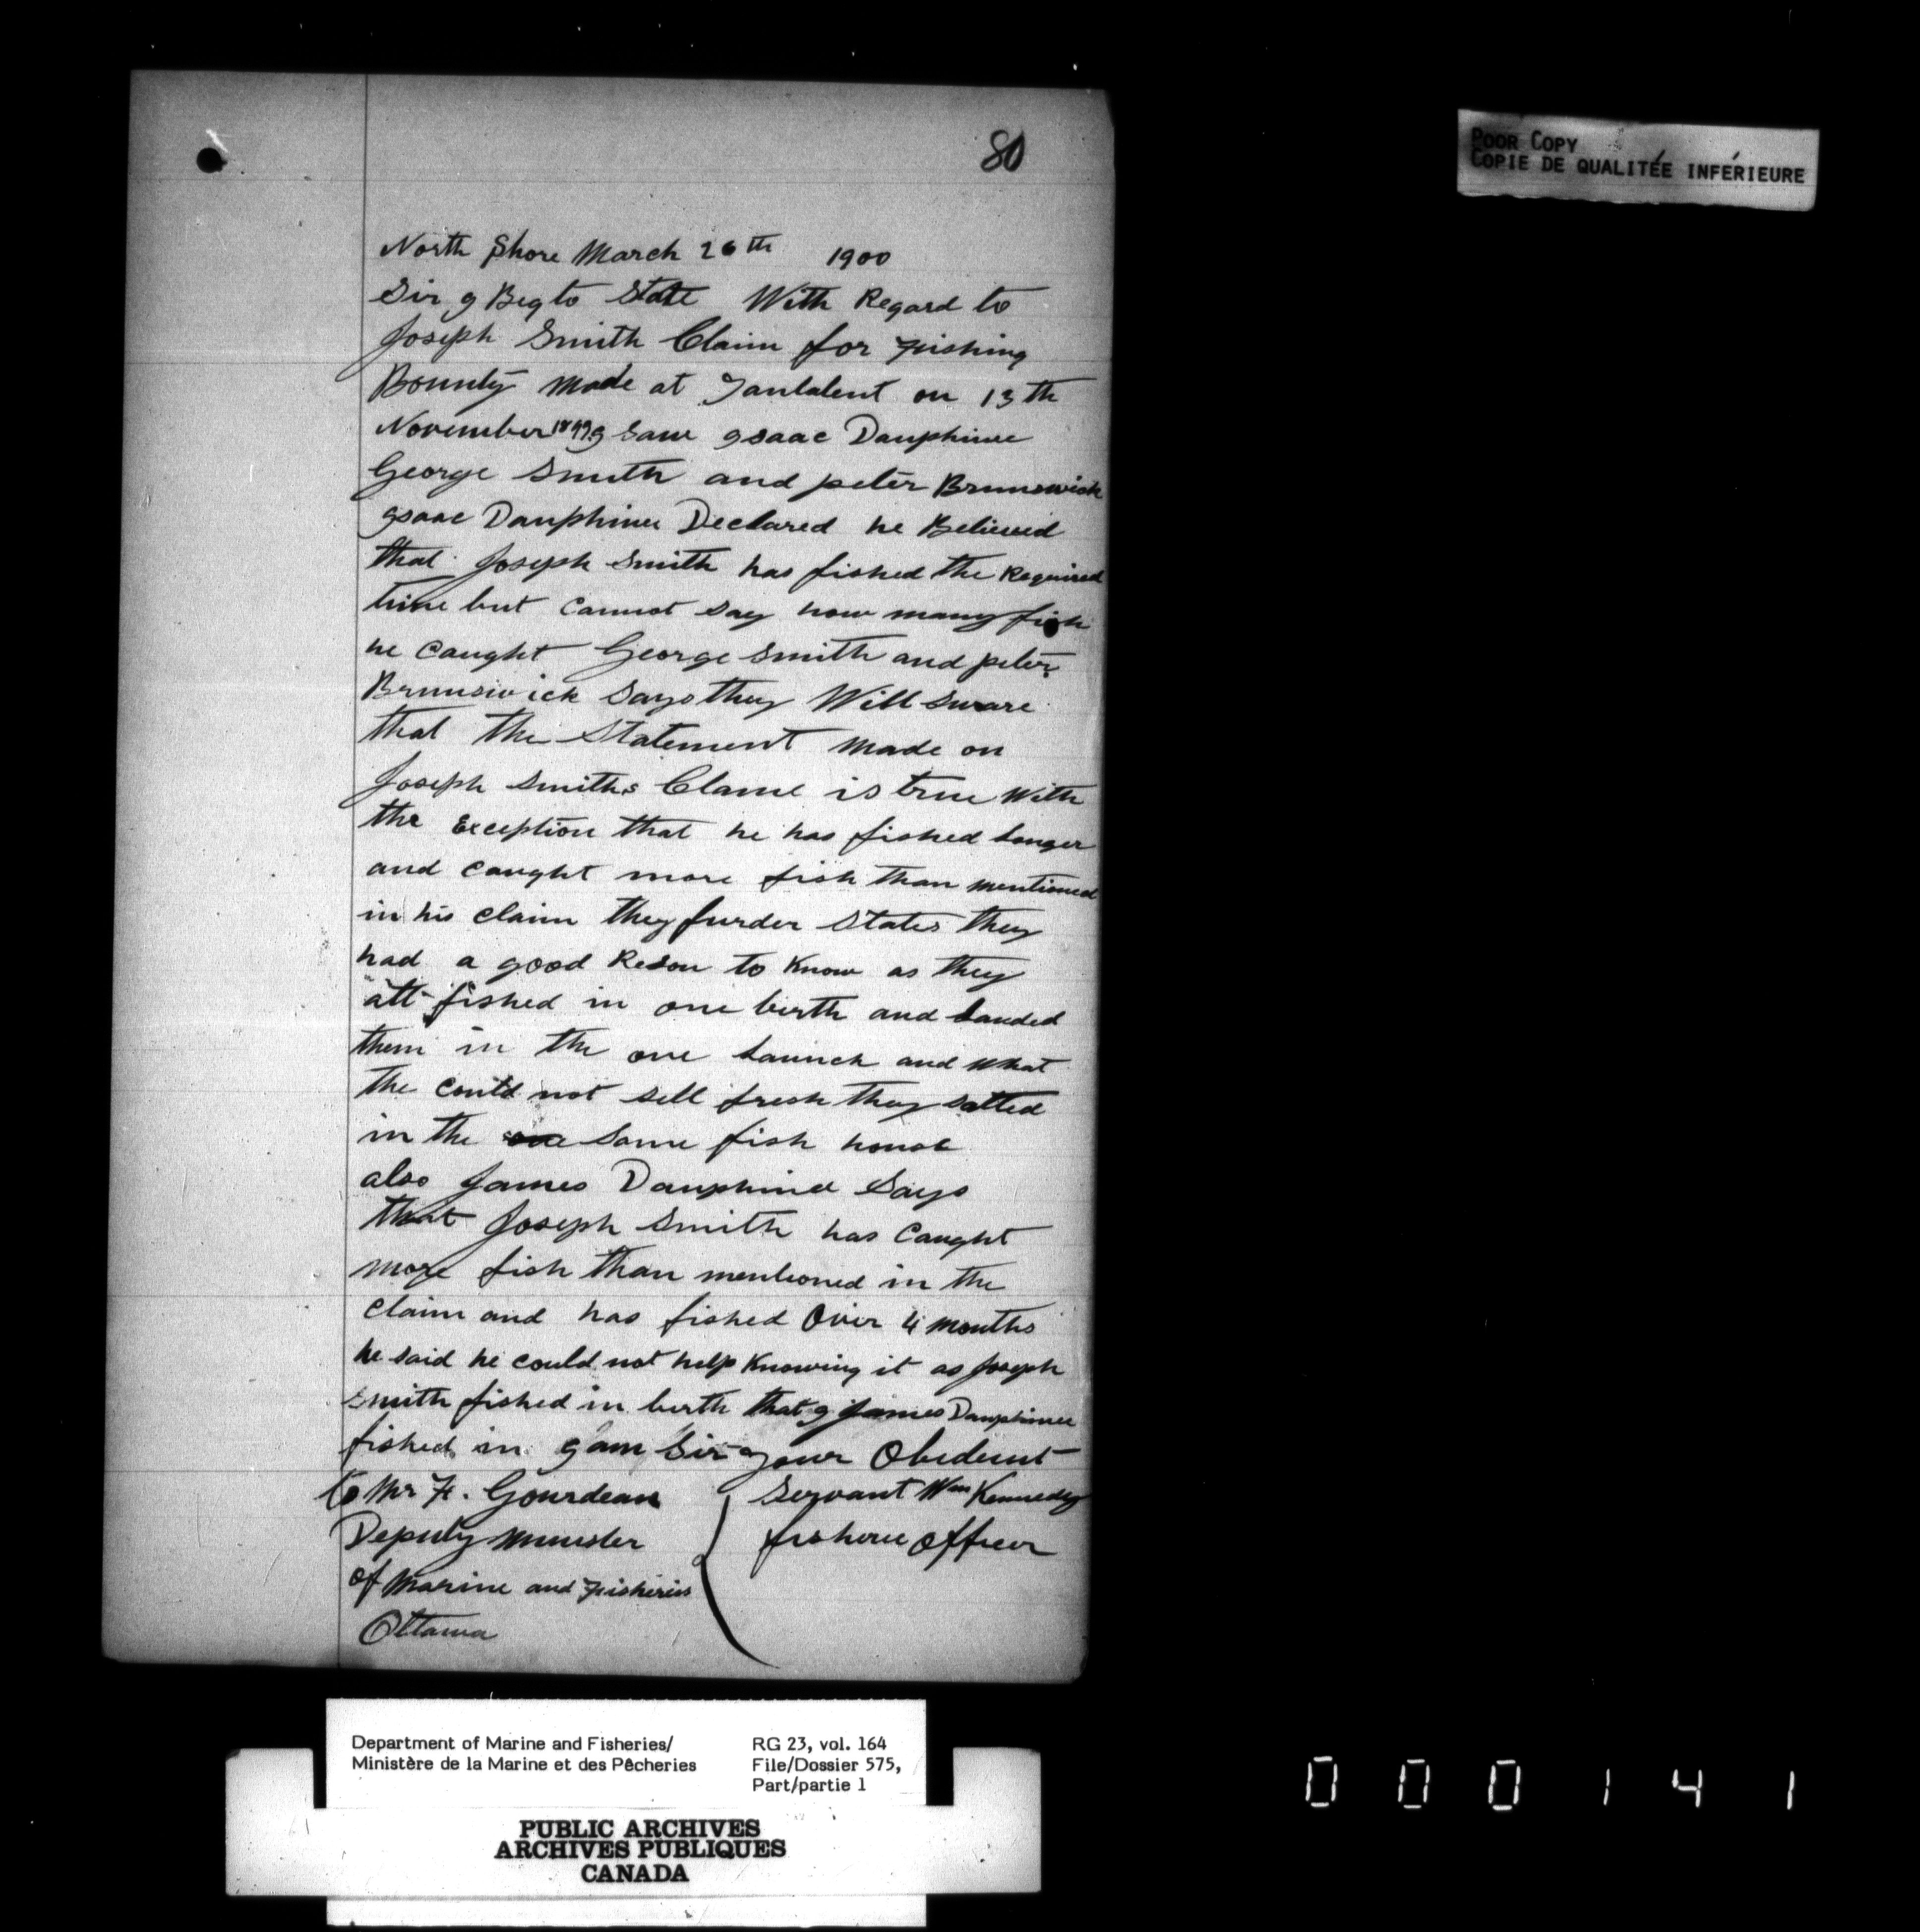 80
POOR COPY
COPIE DE QUALITÉE INFÉRIEURE
North Shore March 26th 1900
Sir I Beg to State With Regard to
Joseph Smith Claim for Fishing
Bounty Made at on 13th
November 1899 I saw Isaac Dauphinee
George Smith and peter Brunswick
Isaac Dauphinee Declared he Believed
that Joseph Smith has fished the Required
time but Cannot say how many fish
he Caught George Smith and peter
Brunswick Says they Will sware
that the Statement Made on
Joseph Smiths Clame is true With
the Exception that he has fished longer
and caught more fish than mentioned
in his claim they furder States they
had a good Reson to Know as they
all fished in one birth and landed
them in the one launch and What
the could not sell fresh they salted
in the same fish house
also James Dauphinee Says
that Joseph Smith has Caught
more fish than mentioned in the
claim and has fished Over 4 Months
he said he could not help Knowing it as Joseph
Smith fished in birth that I James Dauphinee
fished in I am Sir your Obedient
to Mr F. Gourdeau Servant Wm Kennedy
Deputy Minister fisherie Officer
of Marine and Fisheries
Ottawa
Department of Marine and Fisheries/ RG 23, vol. 164
Ministère de la Marine et des Pêcheries File/Dossier 575,
Part/partie 1
PUBLIC ARCHIVES
ARCHIVES PUBLIQUES
CANADA
000141